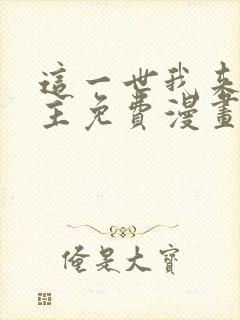 這一世我來
主免費漫畫
俺是大寶